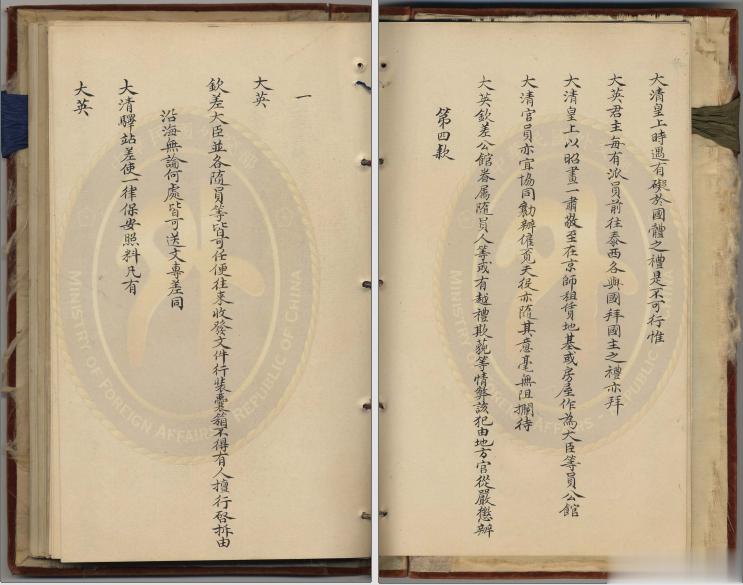 大清皇上時遇有礙於國體之禮是不可行惟
大英君主每有派員前往泰西各與國拜國主之禮亦拜
大清皇上以昭畫一肅敬至在京師租賃地基或房屋作為大臣等員公館
大清官員亦宜協同勷辦僱覓夫役亦隨其意毫無阻攔待
大英欽差公館眷屬隨員人等或有越禮欺藐等情弊該犯由地方官從嚴懲辦
第四款
一
大英
欽差大臣並各隨員等皆可任便往來收發文件行裝囊箱不得有人擅行啓拆由
沿海無論何處皆可送文專差同
大清驛站差使一律保安照料凡有
大英
MINISTRY OF FOREIGN AFFAIRS REPUBLIC OF CHINA
MINISTRY OF FOREIGN AFFAIRS REPUBLIC OF CHINA